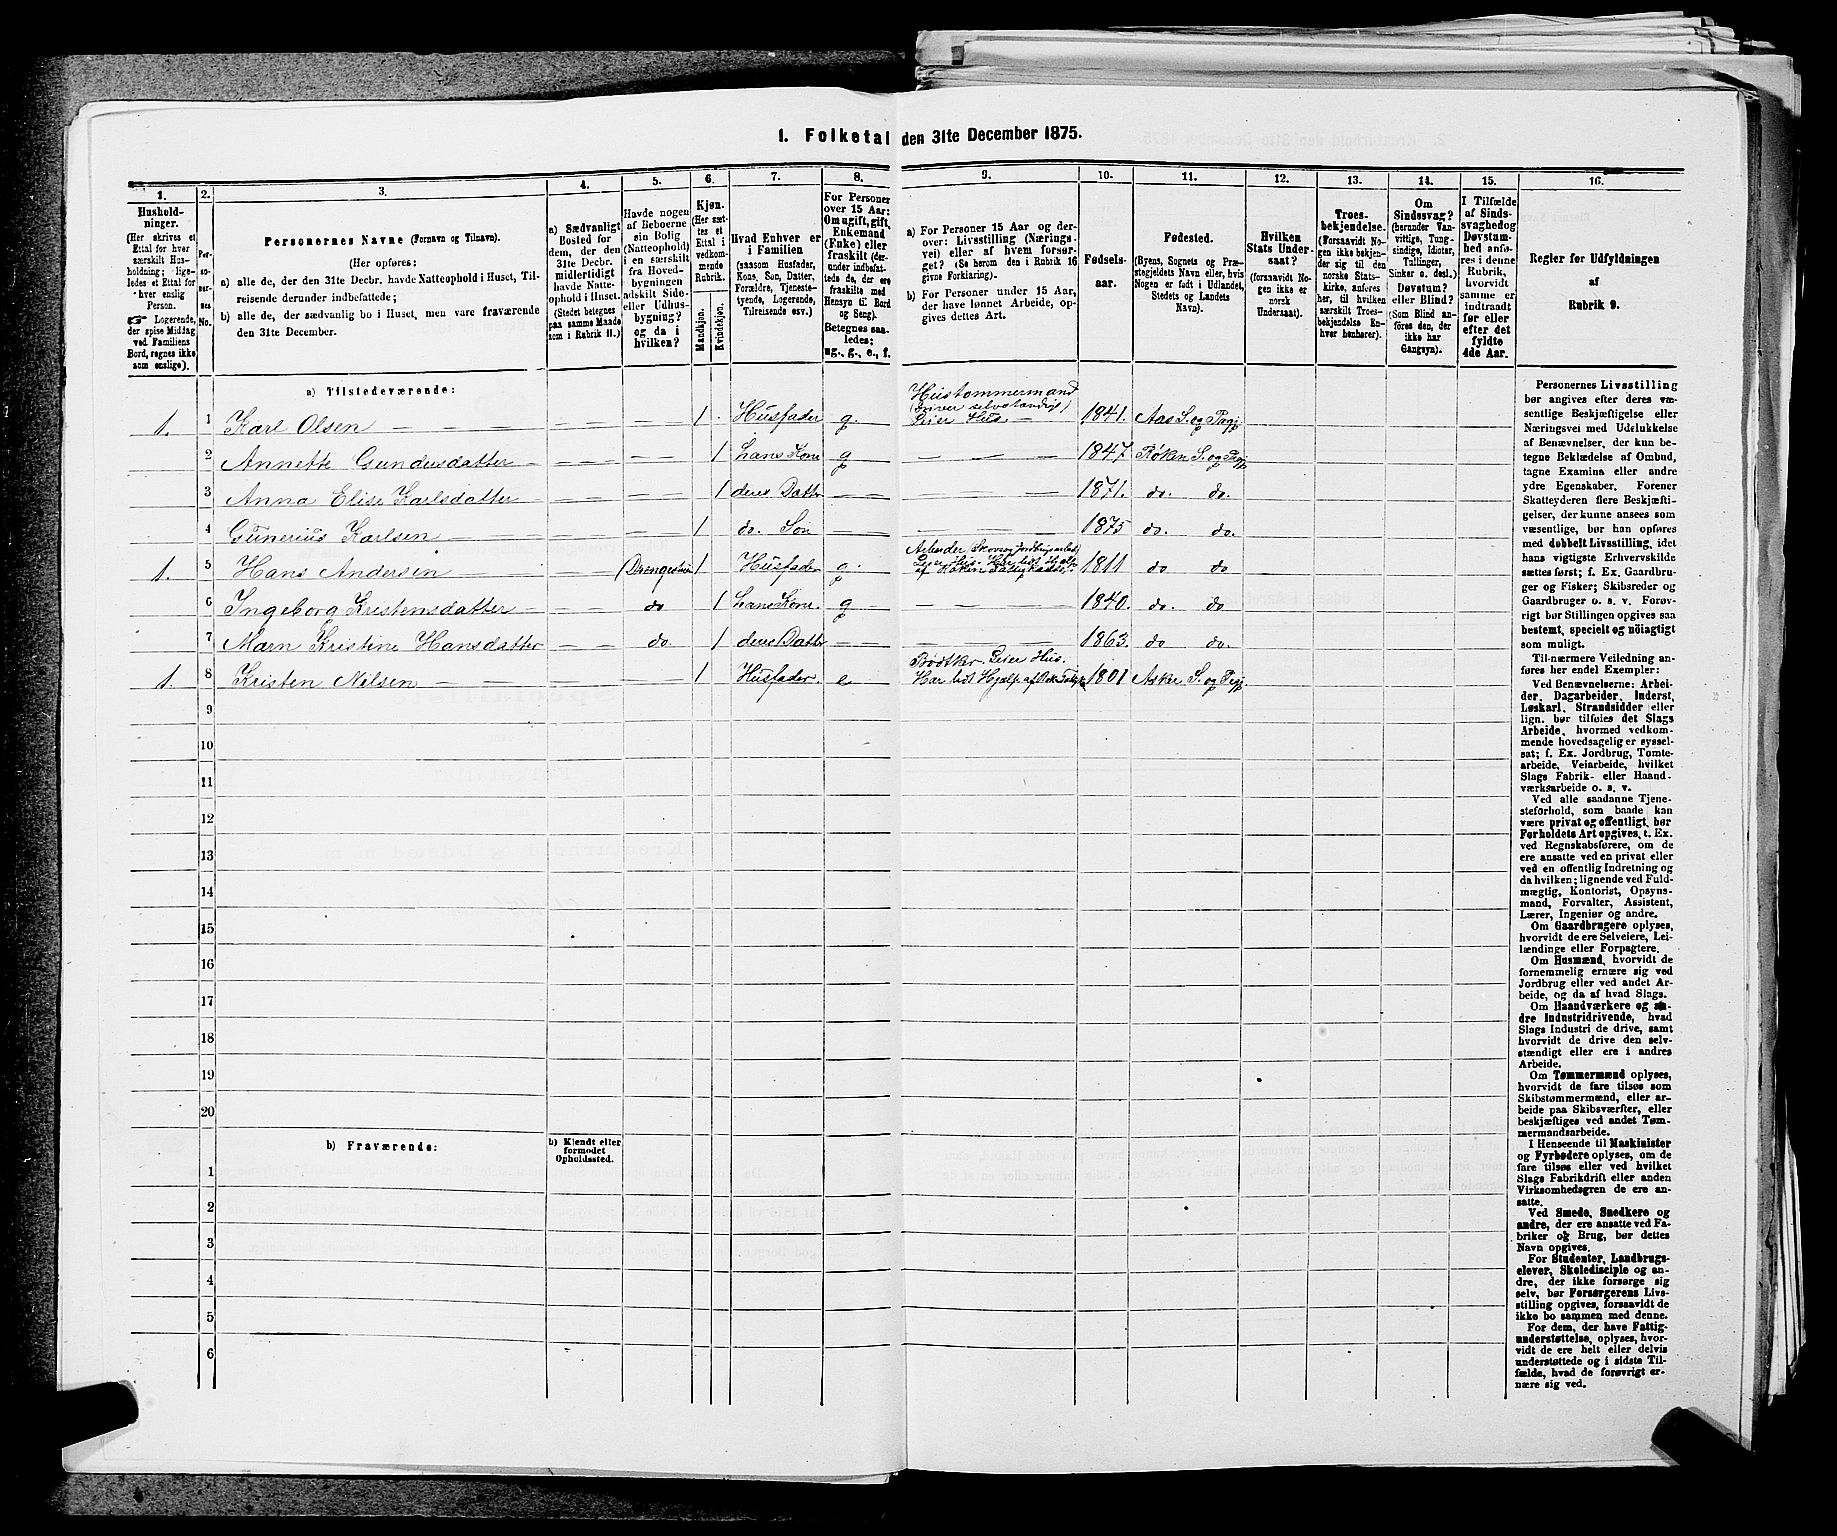 1. Folketal den 31te December 1875.
1.
2.
3.
4.
5.
6.
7.
8.
9.
10.
11.
12.
13.
14.
15.
16.
Hushold-
ninger.
(Her skrives et
Ettal for hver
særskilt Hus-
holdning; lige-
ledes et Ettal for
hver enslig
Person.
☞ Logerende,
der spise Middag
ved Familiens
Bord, regnes ikke
som enslige).
Per-
so-
ner-
nes
No.
Personernes Navne (Fornavn og Tilnavn).
(Her opføres:
a) alle de, der den 31te Decbr. havde Natteophold i Huset, Til-
reisende derunder indbefattede;
b) alle de, der sædvanlig bo i Huset, men vare fraværende
den 31te December.
a) Sædvanligt
Bosted for
dem, der den
31te Decbr.
midlertidigt
havde Natte-
ophold i Huset.
(Stedet betegnes
paa samme Maade
som i Rubrik 11.)
Havde nogen
af Beboerne
sin Bolig
(Natteophold)
i en særskilt
fra Hoved-
bygningen
adskilt Side-
eller Udhus-
bygning?
og da i
hvilken?
Kjøn.
(Her sæt-
tes et
Ettal i
vedkom-
mende
Rubrik.
Mandkjøn.
Kvindekjøn.
Hvad Enhver er
i Familien
(saasom Husfader,
Kone, Søn, Datter,
Forældre, Tjeneste-
tyende, Logerende,
Tilreisende osv.)
For Personer
over 15 Aar:
Om ugift, gift,
Enkemand
(Enke) eller
fraskilt (der-
under indbefat-
tede de, der ere
fraskilte med
Hensyn til Bord
og Seng).
Betegnes saa-
ledes:
ug., g., e., f.
a) For Personer 15 Aar og der-
over: Livsstilling (Nærings-
vei) eller af hvem forsør-
get? (Se herom den i Rubrik 16
givne Forklaring).
b) For Personer under 15 Aar,
der have lønnet Arbeide, op-
gives dettes Art.
Fødsels-
aar.
Fødested.
(Byens, Sognets og Præ-
stegjeldets Navn eller, hvis
Nogen er født i Udlandet,
Stedets og Landets
Navn).
Hvilken
Stats Under-
saat?
(forsaavidt No-
gen ikke er
norsk
Undersaat).
Troes-
bekjendelse.
(Forsaavidt No-
gen ikke bekjen-
der sig til den
norske Stats-
kirke, anføres
her, til hvilken
særskilt Troes-
bekjendelse En-
hver henhører).
Om
Sindssvag?
(herunder Van-
vittige, Tung-
sindige, Idioter,
Tullinger,
Sinker o. desl.)
Døvstum?
eller Blind?
(Som Blind an-
føres den, der
ikke har
Gangsyn).
I Tilfælde
af Sinds-
svaghed og
Døvstum-
hed anfø-
res i denne
Rubrik,
hvorvidt
samme er
indtraadt
før eller
efter det
fyldte
4de Aar.
Regler for Udfyldningen
af
Rubrik 9.
a) Tilstedeværende:
Hustømmermand
(driver selvstændig)
1. 1 Karl Olsen — — — — — 1 Husfader g. Eier Hus — 1841. Aas S. og Prgj.
2 Annette Gundersdatter — — — 1 hans Kone g — — — 1847 Røken S. og Prgj.
3 Anna Elise Karlsdatter — — — 1 deres Datter — — 1871. do. do.
4 Gunerius Karlsen — — — 1 do. Søn — — 1875 do. do.
1. 5 Hans Andersen — — 1 Husfader g. 1811 do do
6 Ingeborg Kristensdatter — — do 1 hans Kone. g — — — 1840. do. do
7 Marn Kristine Hansdatter do. 1 deres Datter — — 1863. do do.
Bødtker. Eier Hus.
1. 8 Kristen Nilsen — — — — 1 Husfader. e Har lidt Hjælp af 1801 Asker S. og Prgj.
9
10
11
12
13
14
15
16
17
18
19
20
b) Fraværende:
b) Kjendt eller
formodet
Opholdssted.
1
2
3
4
5
6
Personernes Livsstilling
bør angives efter deres væ-
sentlige Beskjæftigelse eller
Næringsvei med Udelukkelse
af Benævnelser, der kun be-
tegne Beklædelse af Ombud,
tagne Examina eller andre
ydre Egenskaber. Forener
Skatteyderen flere Beskjæfti-
gelser, der kunne ansees som
væsentlige, bør han opføres
med dobbelt Livsstilling, idet
hans vigtigste Erhvervskilde
sættes først; f. Ex. Gaardbru-
ger og Fisker; Skibsreder og
Gaardbruger o. s. v. Forøv-
rigt bør Stillingen opgives saa
bestemt, specielt og nöiagtigt
som muligt.
Til nærmere Veiledning an-
føres her endel Exempler:
Ved Benævnelserne: Arbei-
der, Dagarbeider, Inderst,
Løskarl, Strandsidder eller
lign. bør tilføies det Slags
Arbeide, hvormed vedkom-
mende hovedsagelig er syssel-
sat; f. Ex. Jordbrug, Tomte-
arbeide, Veiarbeide, hvilket
Slags Fabrik- eller Haand-
værksarbeide o. s. v.
Ved alle saadanne Tjene-
steforhold, som baade kan
være privat og offentligt, bør
Forholdets Art opgives, t. Ex.
ved Regnskabsførere, om de
ere ansatte ved en privat eller
ved en offentlig Indretning og
da hvilken; lignende ved Fuld-
mægtig, Kontorist, Opsyns-
mand, Forvalter, Assistent,
Lærer, Ingeniør og andre.
Om Gaardbrugere oplyses,
hvorvidt de ere Selveiere, Lei-
lændinge eller Forpagtere.
Om Husmænd, hvorvidt de
fornemmelig ernære sig ved
Jordbrug eller ved andet Ar-
beide, og da af hvad Slags.
Om Haandværkere og an-
dre Industridrivende, hvad
Slags Industri de drive, samt
hvorvidt de drive den selv-
stændigt eller ere i andres
Arbeide.
Om Tømmermænd oplyses,
hvorvidt de fare tilsøs som
Skibstømmermænd, eller ar-
beide paa Skibsværfter, eller
beskjæftiges ved andet Tøm-
mermandsarbeide.
I Henseende til Maskinister
og Fyrbødere oplyses, om de
fare tilsøs eller ved hvilket
Slags Fabrikdrift eller anden
Virksomhedsgren de ere an-
satte.
Ved Smede, Snedkere og
andre, der ere ansatte ved Fa-
briker og Brug, bør dettes
Navn opgives.
For Studenter, Landbrugs-
elever, Skoledisciple og an-
dre, der ikke forsørge sig
selv, bør Forsørgerens Livs-
stilling opgives, forsaavidt de
ikke bo sammen med denne.
For dem, der have Fattig-
understøttelse, oplyses, hvor-
vidt de ere helt eller delvis
understøttede og i sidste Til-
fælde, hvad de forøvrigt er-
nære sig ved.